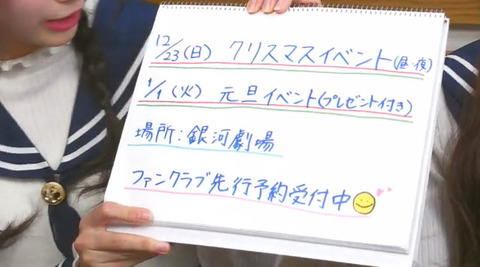 12/23(日) クリスマスイベント(昼夜)
1/1(火) 元旦イベント(プレゼント付き)
場所:銀河劇場
ファンクラブ先行予約受付中